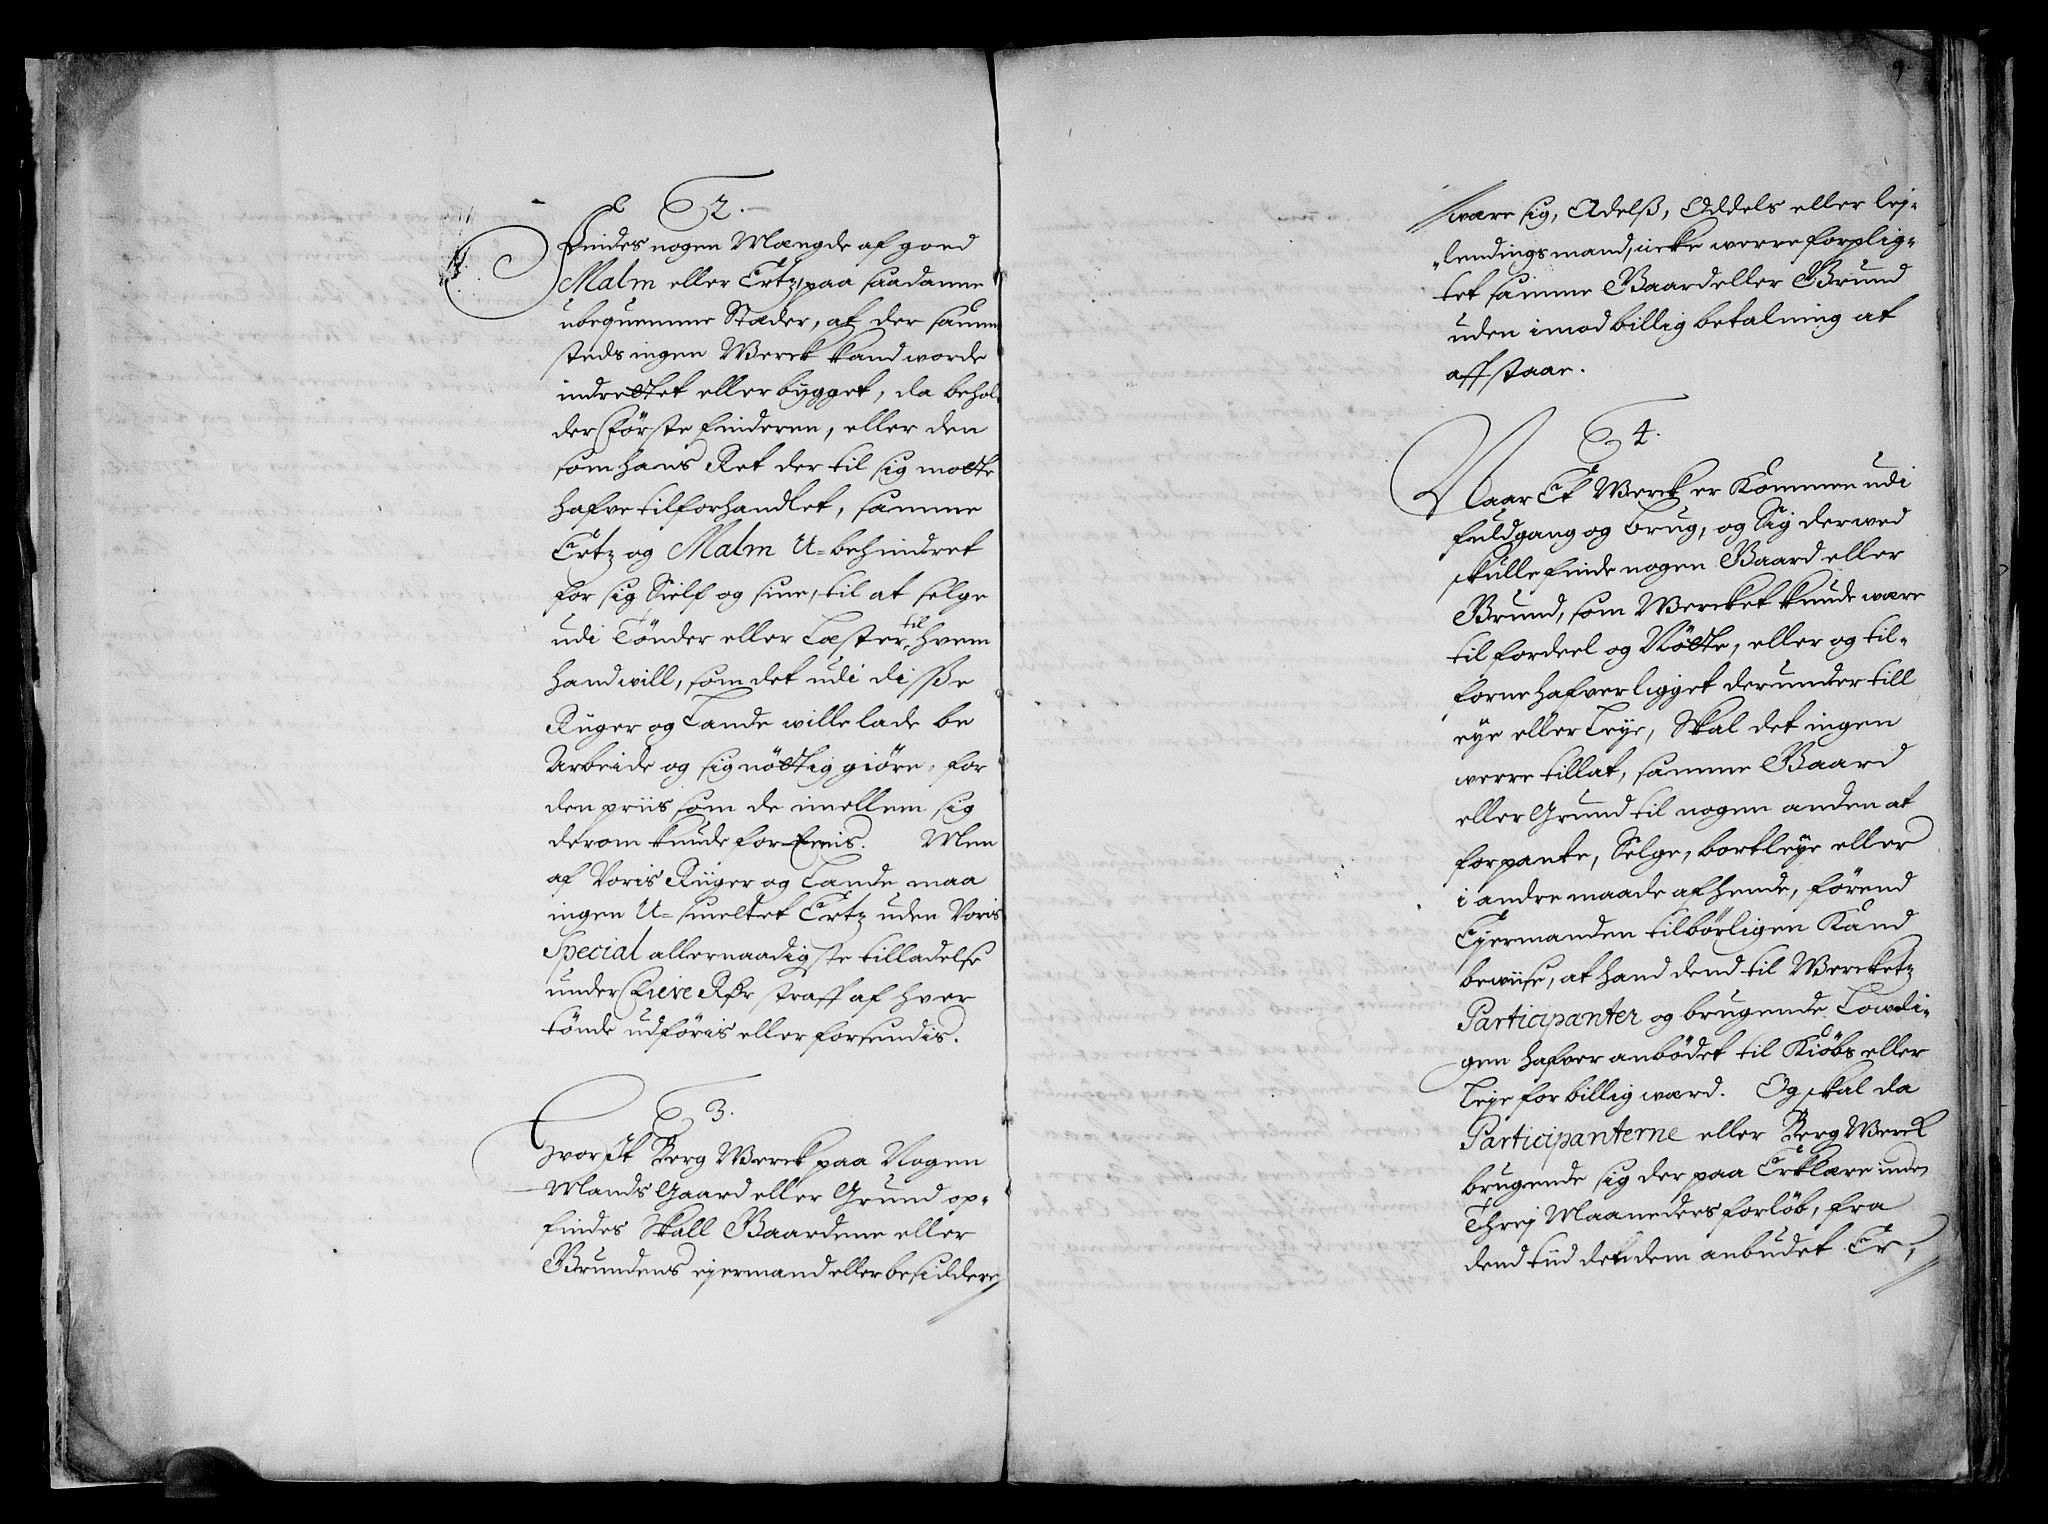 2.
Findes nogen Mængde af goed
Malm eller Ertz, paa saadanne
ubequemme Stæder, at der samme
steds ingen Werck kand worde
indrettet eller bygget, da behol-
der Første finderen, eller den
som hans Ret der til sig motte
hafve tilforhandlet, samme
Ertz og Malm U-behindret
for sig Sielf og sine, til at selge
udi Tønder eller Læster, til hvem
hand will, som det udi disße
Rüger og Lande wille lade be
Arbeide og sig nøttig giøre, for
den priis som de imellem sig
derom kunde for Enis. Men
af Voris Rüger og Lande maa
ingen U-smeltet Ertz uden Voris
Special allernaadigste tilladelse
under Tive Rdr straff af hver
tønde udføris eller forsendis.
3.
Hvor It Berg Werck paa Nogen
Mands Gaard eller Grund op-
findes Skall Gaardene eller
Grundens ejermand eller besiddere
9.
være sig, Adelß, Oddels eller lej-
lendings mand, icke werre forplig-
tet samme Gaard eller Grund
uden imod billig betalning at
affstaae.
4.
Naar Et Werck er Kommen udi
fuldgang og brug, og Sig derwed
skulle finde nogen Gaard eller
Grund, som Wercket kunde være
til fordeel og Nötte, eller og til-
forne hafver ligget derunder till
eye eller Leye, Skal det ingen
werre tillat, samme Gaard
eller Grund til nogen anden at
forpante, Selge, bortleye eller
i andre maade afhende, førend
Ejermanden tilbørligen Kand
bewiise, at hand dend til Wercketz
Participanter og brugende Lowli-
gen hafver anbødet til Kiøbs eller
Leye for billig wærd. Og skal da
Participanterne eller Berg Werck
brugende sig der paa Erklære inden
Threj Maaneders forløb, fra
dend tiid det dem anbudet Er,